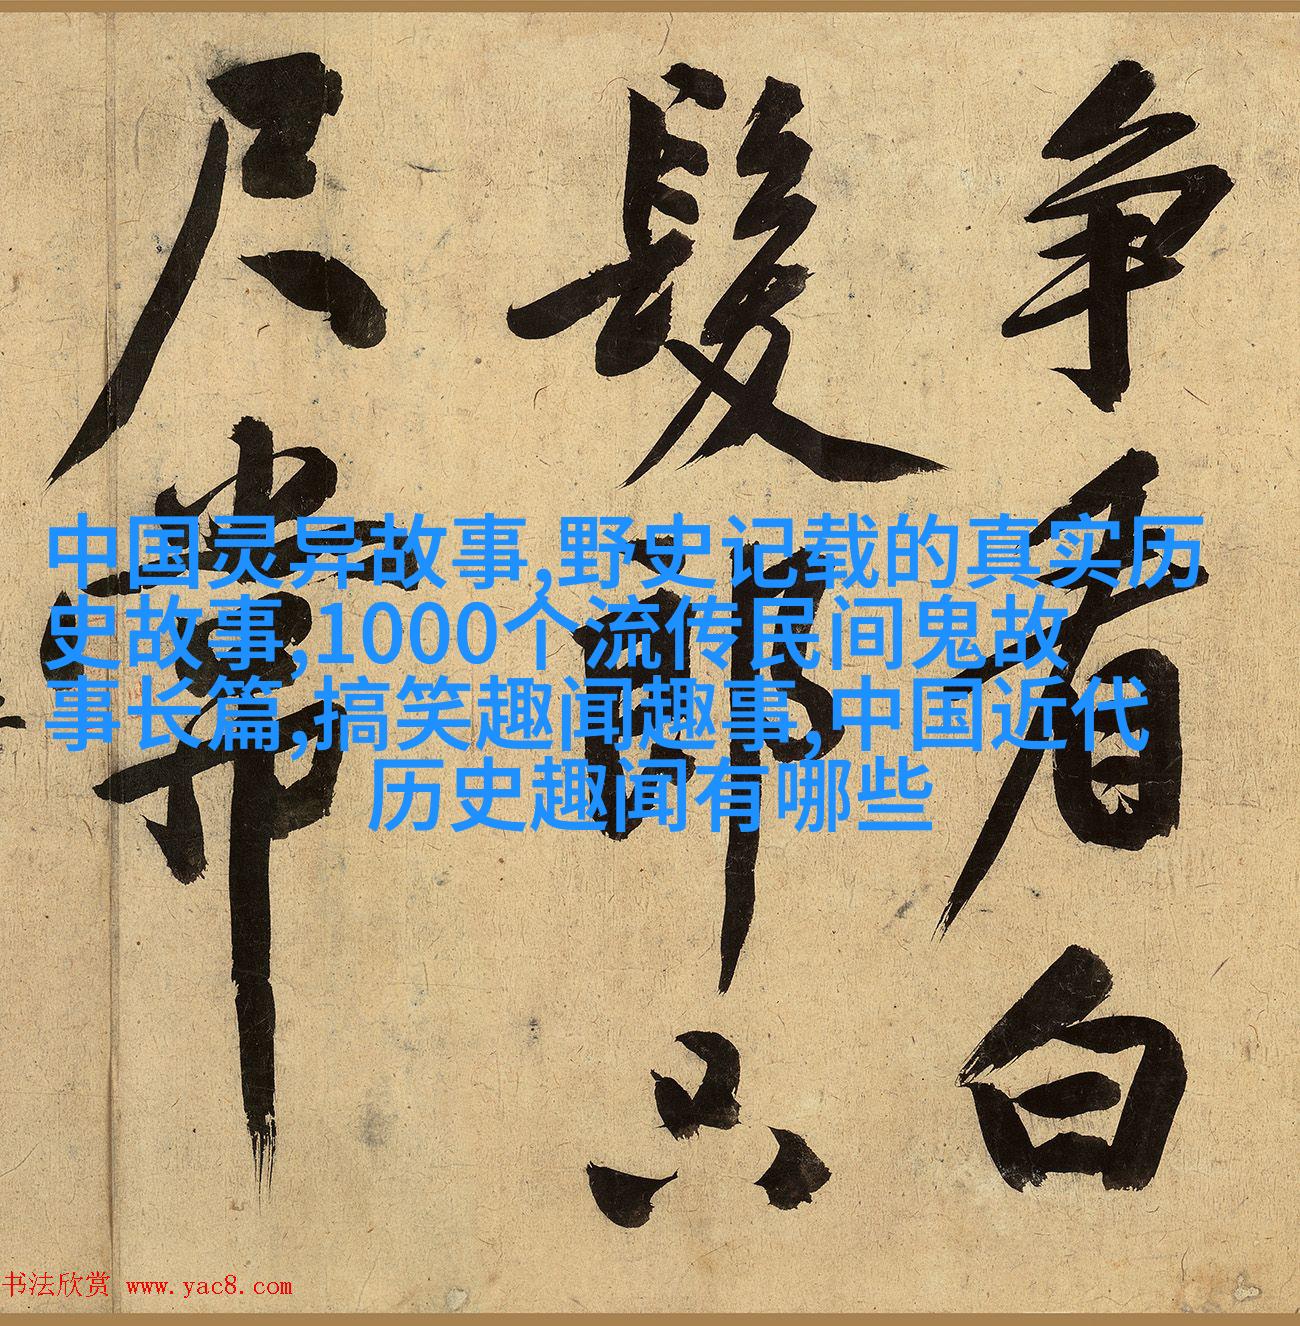 争看白
髮郎只
尺常
中国灵异故事,野史记载的真实历
史故事,1000个流传民间鬼故
事长篇,搞笑趣闻趣事,中国近代
历史趣闻有哪些
书法欣赏 www.yac8.com